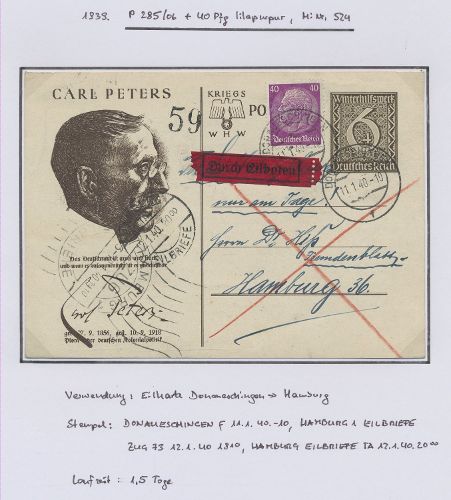 1939. P 285/06 + 40 Pfg lilapurpur, Mi Nr. 524
CARL PETERS
59
KRIEGS
WHW
PO
40 40
Deutsches Reich
Winterhilfswerk
6
Deutsches Reich
Durch Eilboten
11.1.40.-10
nur am Tage
Herrn Dr. Hiß
Fremdenblatt
Hamburg 36.
12.1.40
EILBRIEFE
Das Deutschtum
Carl Peters
geb. 27. 9. 1856, gest. 10. 9. 1918
Pionier der deutschen Kolonialpolitik
Verwendung: Eilkarte Donaueschingen → Hamburg
Stempel: DONAUESCHINGEN F 11.1.40.-10, HAMBURG 1 EILBRIEFE
ZUG 73 12.1.40 1810, HAMBURG EILBRIEFE TA 12.1.40.2000
Laufzeit: 1,5 Tage